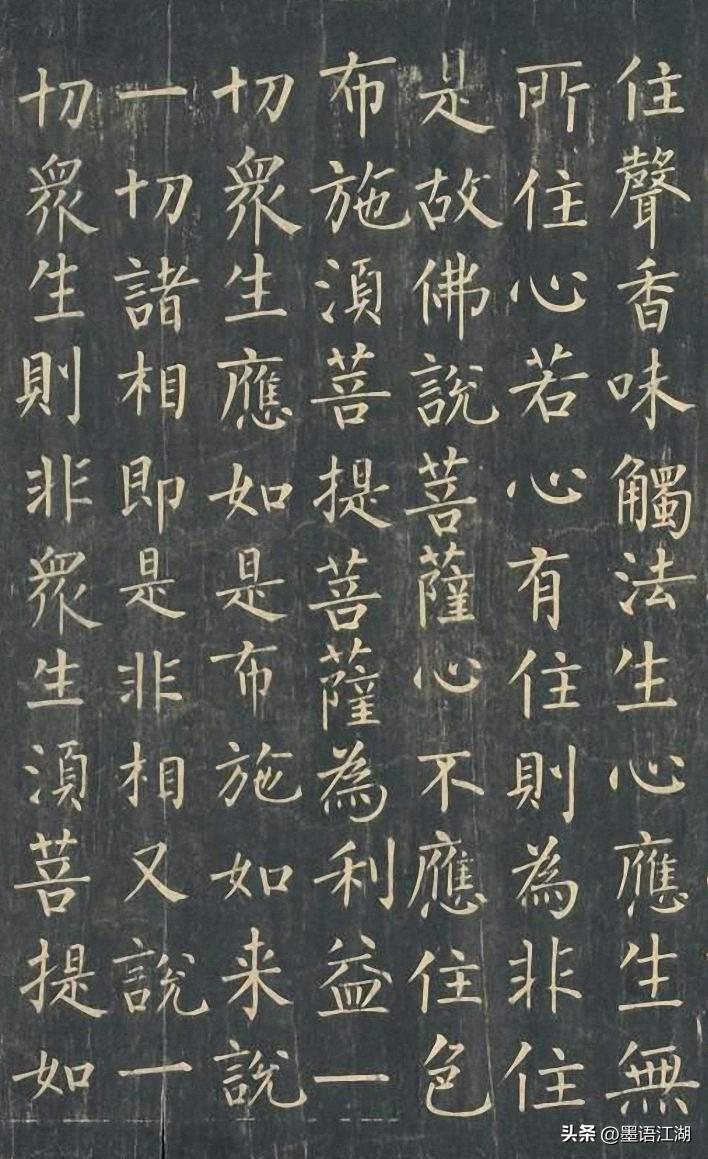 住聲香味觸法生心應生無
所住心若心有住則為非住
是故佛說菩薩心不應住色
布施湏菩提菩薩為利益一
切眾生應如是布施如来說
一切諸相即是非相又說一
切眾生則非眾生湏菩提如
头条 @墨语江湖